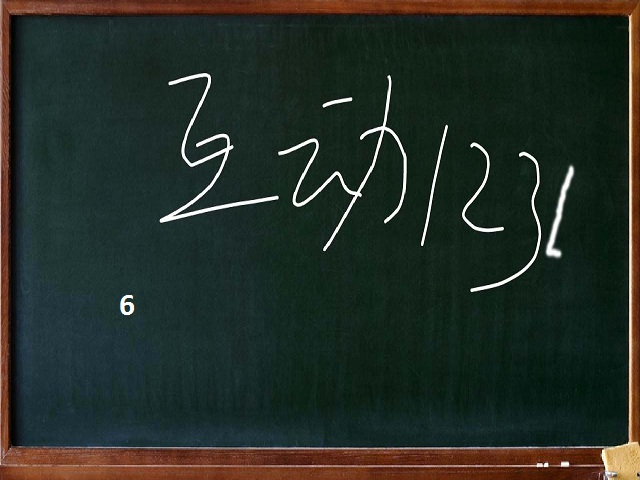 互动123
6